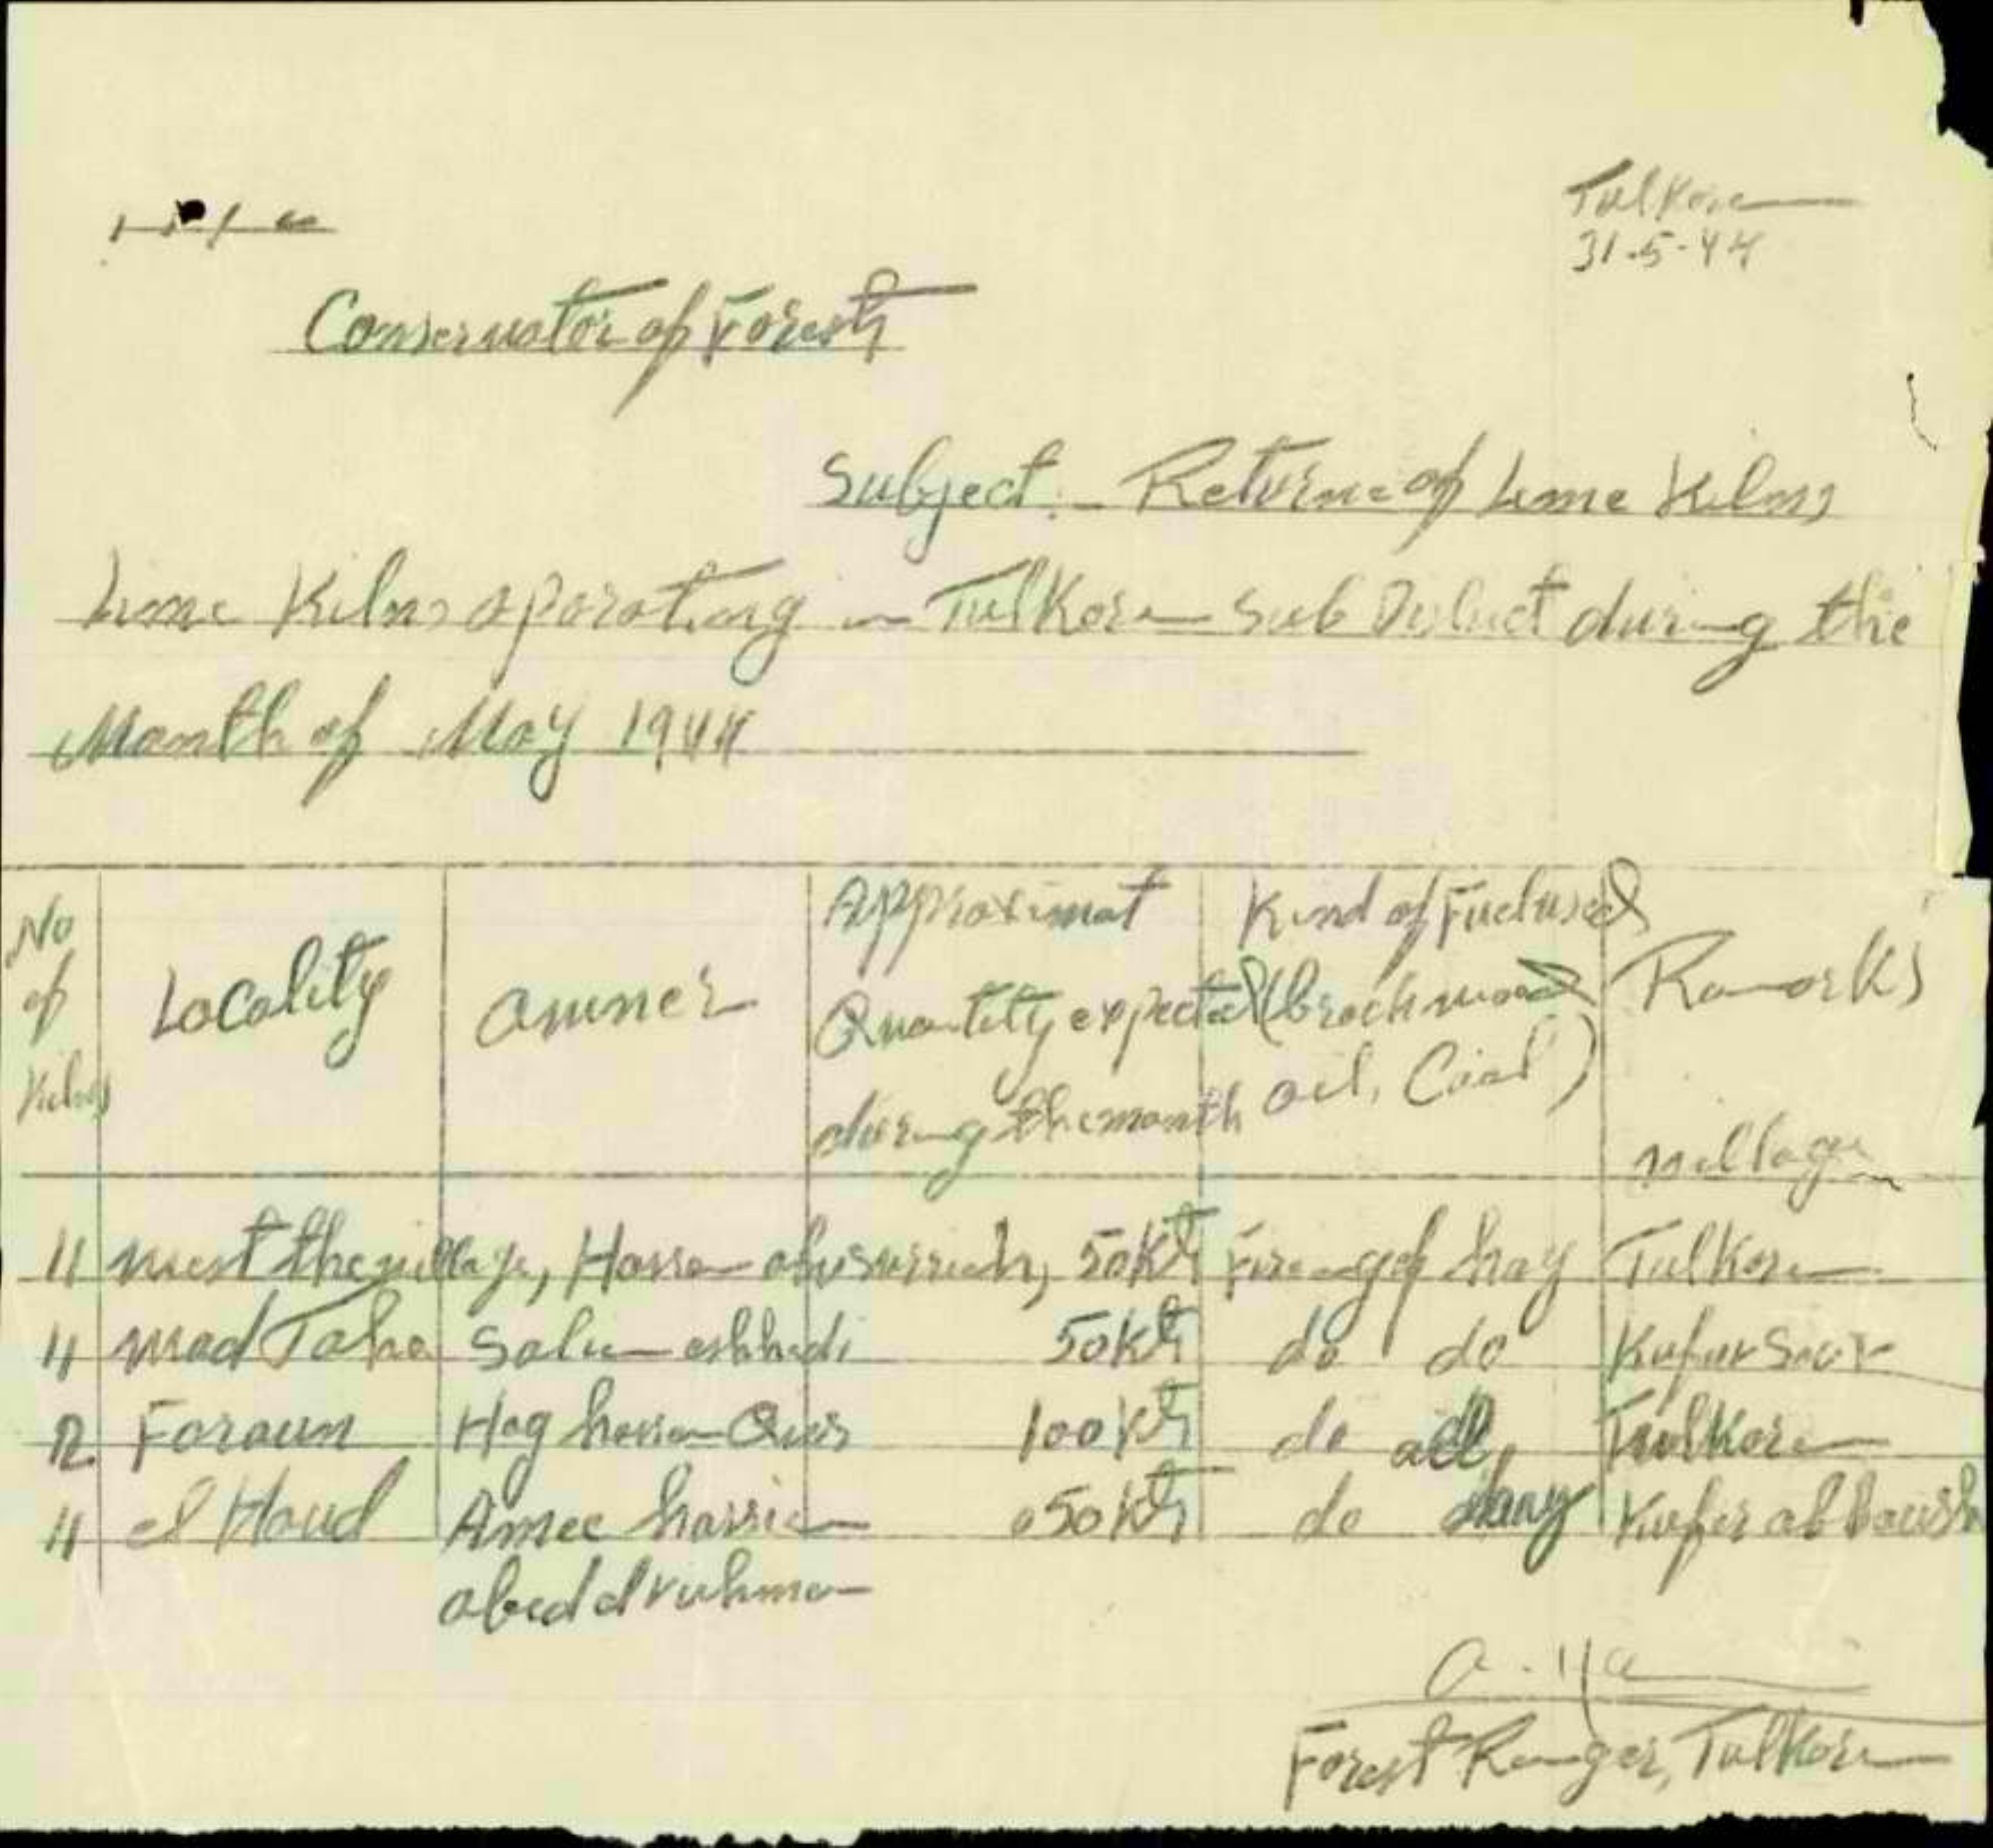 Tulkarem
31-5-44
Conservator of Forests
Subject:- Returne of Lime Kilns
Lime Kilns oparating in Tulkarem Sub District during the
Month of May 1944
No of Kilns | Locality | owner | Approximat Quantity expected during the month | Kind of Fuel used (brockwood oil, Coal) | Remarks village
11 west the village, Hassan 50 Kts Firing of hay Tulkarem
11 wad Taha Salim 50 Kts do do Kufur Sour
12 Foraun Hag hassan 100 Kts do oil, Tulkarem
11 el Houd Amee hassien 50 Kts do hay Kufer abboush
abed elruhman
Forest Ranger, Tulkarem